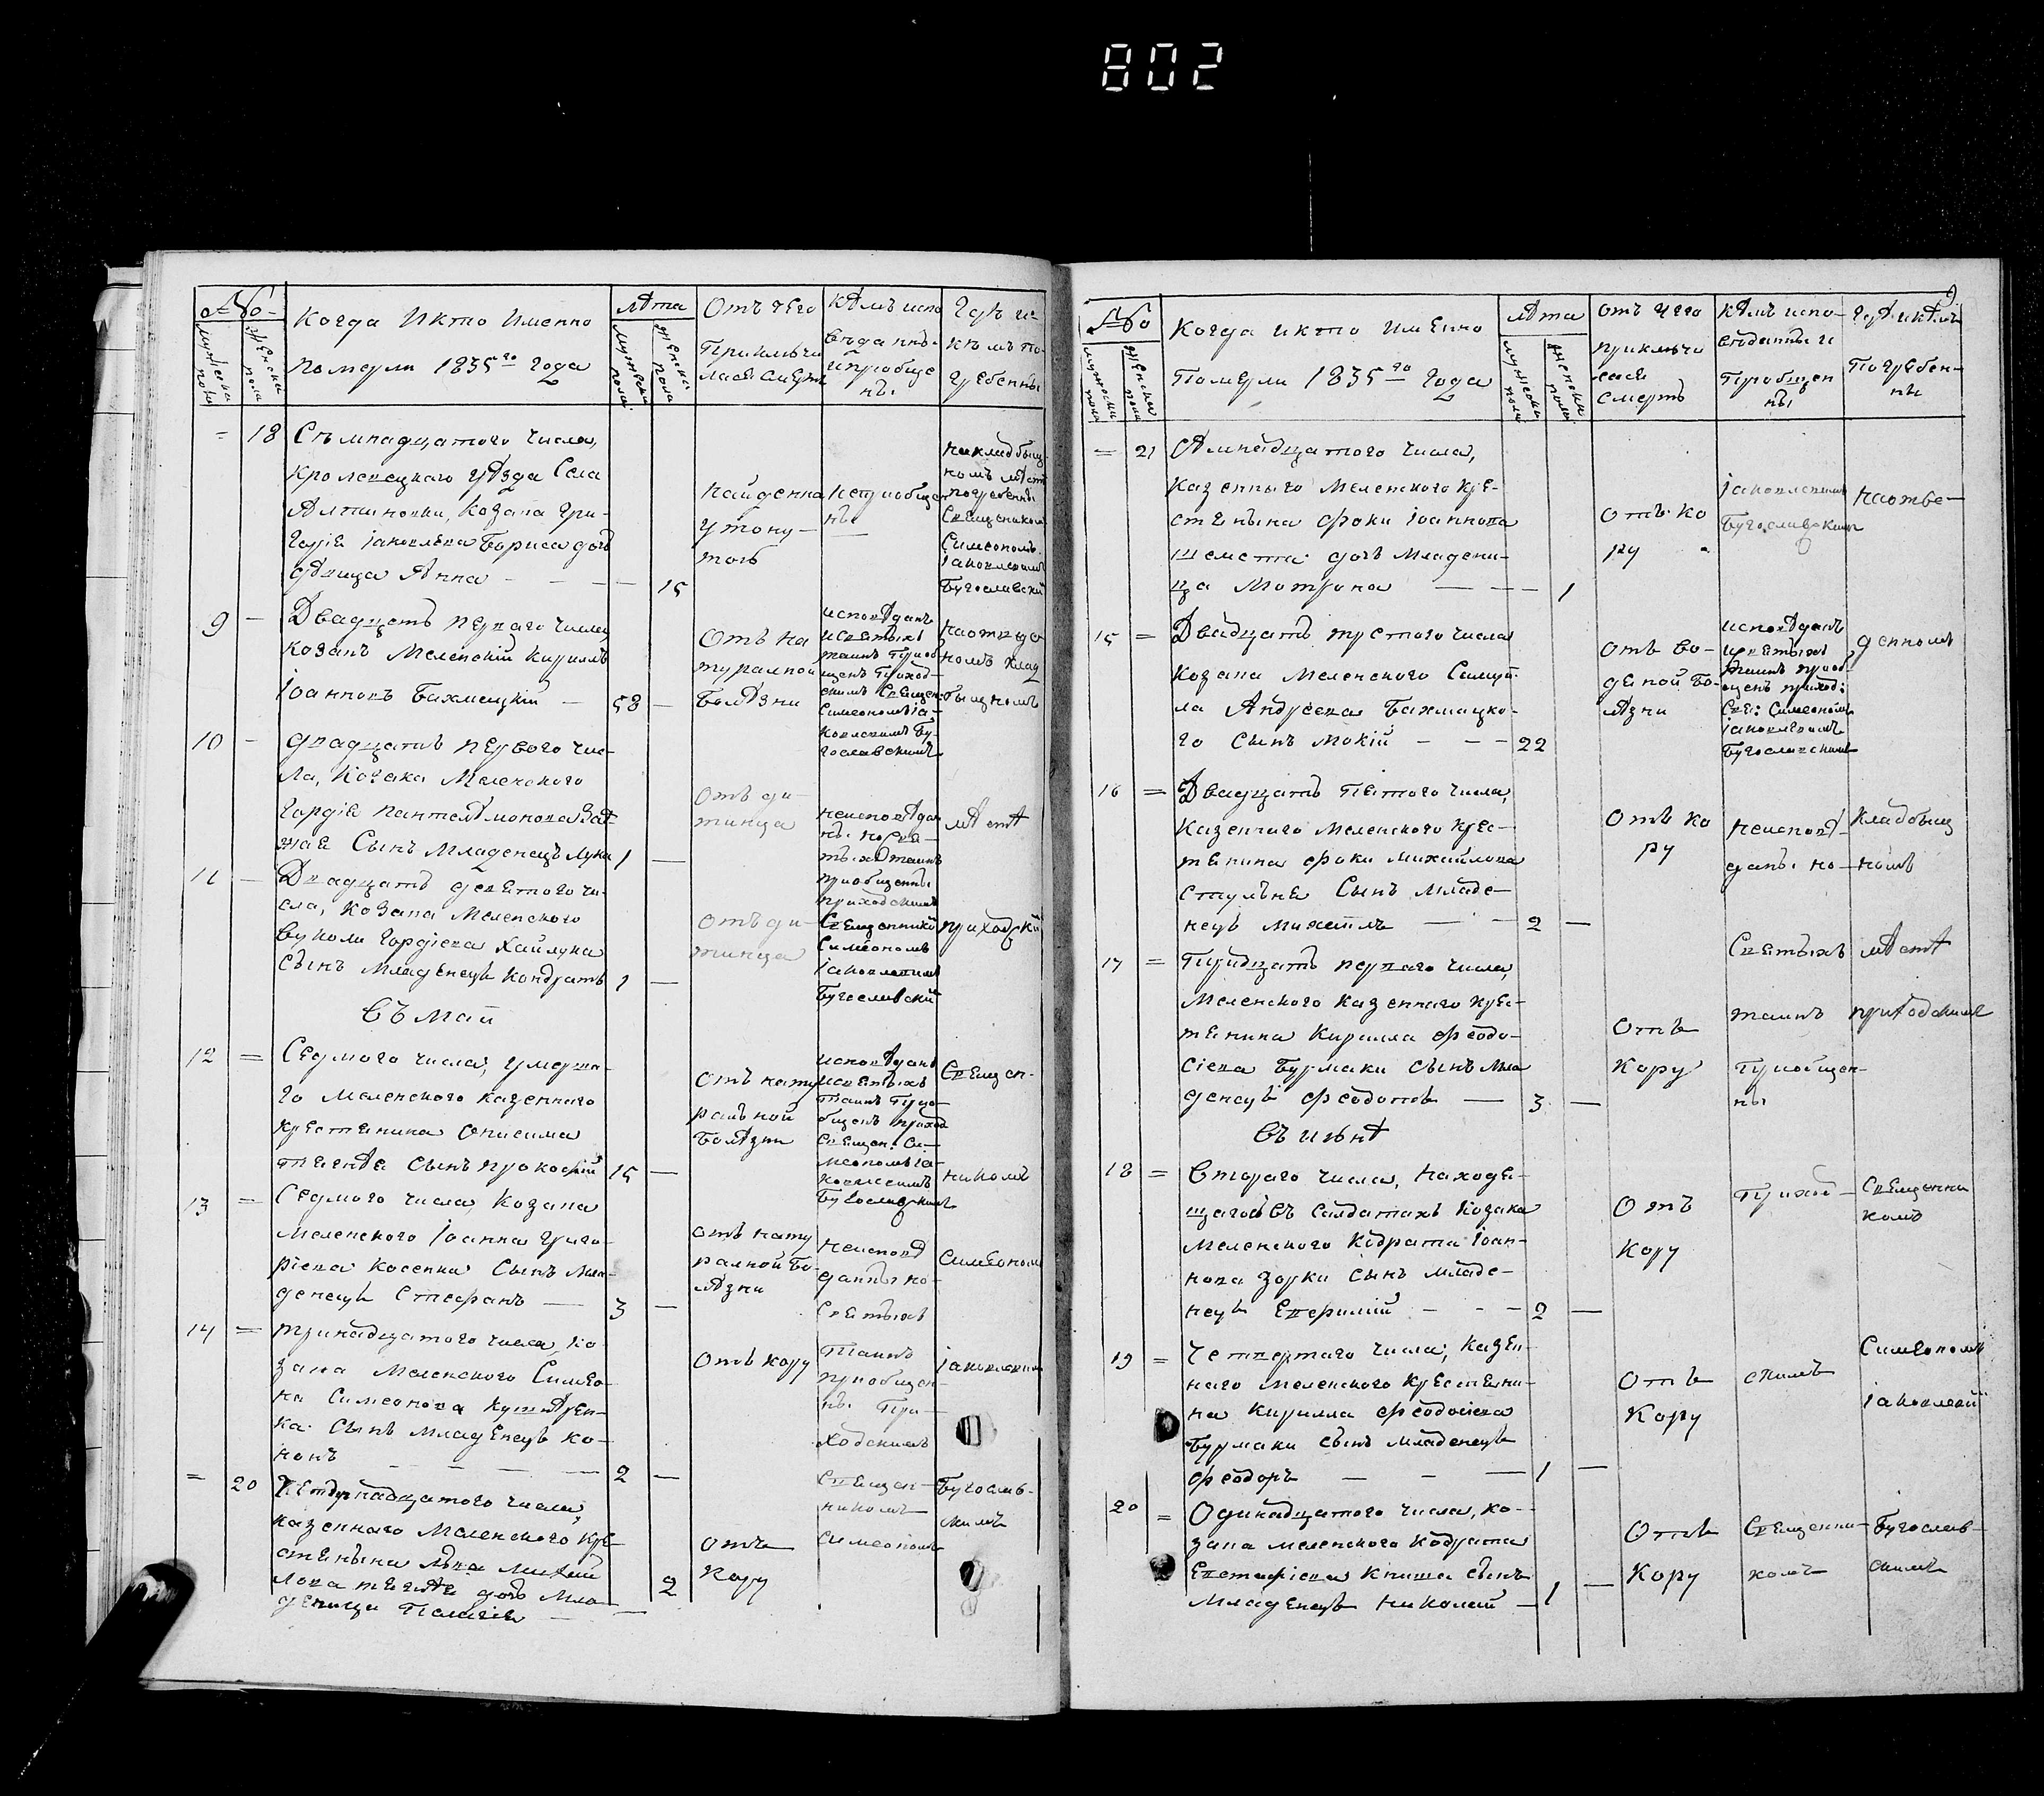 802
№
мужеска пола
женска пола
Когда и кто именно
померли 1835го года
лѣта
мужеска пола
женска пола
Отъ чего
приключи
лась смерть
кѣмъ испо
вѣданы
и приобще
ны
Гдѣ и
кѣмъ по
гребены
= 18 Съмнадцатого числа,
Кролевецкаго уѣзда Села
Алтиновки, Козака Гри-
горія Іаковлева Бориса дочь
дѣвица Анна — — — 15
найденна
утону-
тоь
неприобщен
ны
на кладбищ
номъ мѣстѣ
погребенны
Священикомъ
Симеономъ
Іаковлевимъ
Бугославский
9 — Двадцеть перваго числа
козакъ Меленскій Кириллъ
Іоанновъ Бахмецкій — 58 —
Отъ на
туралной
болѣзни
исповѣданъ
и святыхъ
таинъ приоб
щенъ приход
скимъ Священ:
Симеономъ Іа-
ковлевимъ Бу-
гославскимъ
на отведе
номъ клад
бищномъ
10 — двадцать первого чис-
ла, Козака Меленского
Гордія Пантелѣмонова
сынъ младенецъ Лука 1 —
Отъ ди-
тинца
неисповѣда
ны но свя-
тыхъ таинъ
приобщенны
приходскимъ
мѣстѣ
11 — Двадцать девятого чи-
сла, козака Меленского
Вукола Гордіева Хайлука
сынъ младенецъ Кондратъ 1 —
Отъ ди-
тинца
Священники
Симеономъ
Іаковлевимъ
Бугославский
приходский
Въ Маи
12 = Седмого числа, умерша-
го Меленского казенного
крестянина Онисима
сынъ Прокофій 15 —
Отъ нату
ральной
болѣзни
исповѣданъ
и святыхъ
таинъ прио-
бщенъ приход
Священ: Си-
меономъ Іа-
ковлевимъ
Бугославскимъ
Священ-
никомъ
13 = Седмого числа, козака
Меленского Іоанна Григо-
ріева Косенка сынъ мла-
денецъ Стефанъ — 3 —
Отъ нату
ралной бо-
лѣзни
неисповѣ
данны но-
святыхъ
Симеономъ
14 = Тринадцатого числа, ко-
зака Меленского Симео-
на Симеонова
ка сынъ младенецъ Ко-
нонъ — — — — 2 —
Отъ кору
таинъ
приобщен-
ны при-
ходскимъ
Іаковлевимъ
= 20 Четырнадцатого числа,
казенного Меленского кре-
стянина Лва Михай
лова дочь мла-
деница Пелагія — — 2
Отъ
кору
Священ-
никомъ
Симеономъ
Бугослав-
скимъ
9
№
мужеска пола
женска пола
Когда и кто именно
Померли 1835го года
лѣта
мужеска пола
женска пола
отъ чего
приключи
лася
смерть
кѣмъ испо-
вѣданны и
приобщен
ны
гдѣ и кѣмъ
Погребен-
ны
= 21 Ѣмнадцатого числа,
Казенного Меленского кре-
стянина Фоки Іоаннова
Шемета дочь младени-
ца Мотрона — — — 1
отъ ко
ру
Іаковлевимъ
Бугославскимъ
на отве-
15 = Двадцать третого числа
козака Меленского Самуй-
ла Андреева Бахмацко-
го сынъ Мокій — — 22
отъ во-
деной бо-
лѣзни
исповѣданъ
и святыхъ
таинъ приоб-
щенъ приход:
Свя: Симеономъ
Іаковлевимъ
Бугославскимъ
денномъ
16 = Двадцать пятого числа,
казенного Меленского крес-
тянина Фоки Михайлова
сынъ младе-
нецъ Михаилъ — — 2 —
Отъ ко
ру
неисповѣ-
даны но-
кладбищ
номъ
17 = Тридцать перваго числа,
Меленского казенного крес-
тянина Кирилла Феодо-
сіева Бурмаки сынъ мла
денецъ Феодотъ — 3 —
Отъ
Кору
Святыхъ
таинъ
приобщен-
ны
мѣстѣ
приходскимъ
Въ июнѣ
18 = Второго числа, находя-
щагось въ салдатахъ козака
Меленского Кодрата Іоан-
нова Зорки сынъ младе-
нецъ Евфимій — — 2 —
Отъ
Кору
приход-
Священни
комъ
19 = Четвертаго числа, казен-
наго Меленского крестяни-
на Кирилла Феодосіева
Бурмаки сынъ младенецъ
Феодоръ — — — 1 —
Отъ
Кору
скимъ
Симеономъ
Іаковлевий
20 = Одинадцатого числа, ко-
зака Меленского Кодрата
Евстафіева Книша сынъ
младенецъ Николай — 1 —
Отъ
Кору
Священни-
комъ
Бугослав-
скимъ